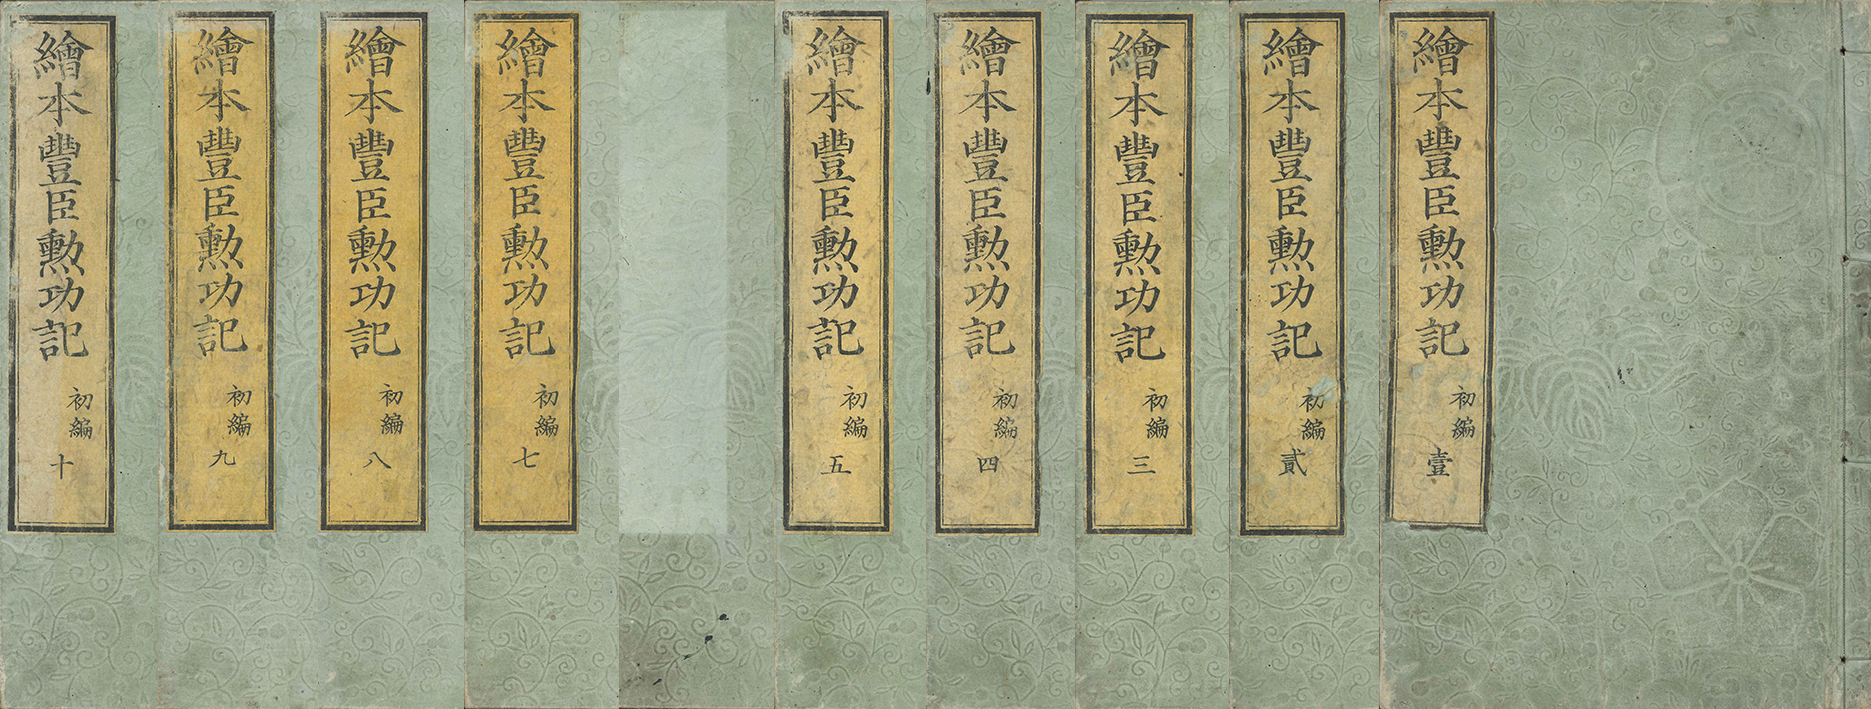 繪本豐臣勲功記 初編 壹
繪本豐臣勲功記 初編 貳
繪本豐臣勲功記 初編 三
繪本豐臣勲功記 初編 四
繪本豐臣勲功記 初編 五
繪本豐臣勲功記 初編 七
繪本豐臣勲功記 初編 八
繪本豐臣勲功記 初編 九
繪本豐臣勲功記 初編 十